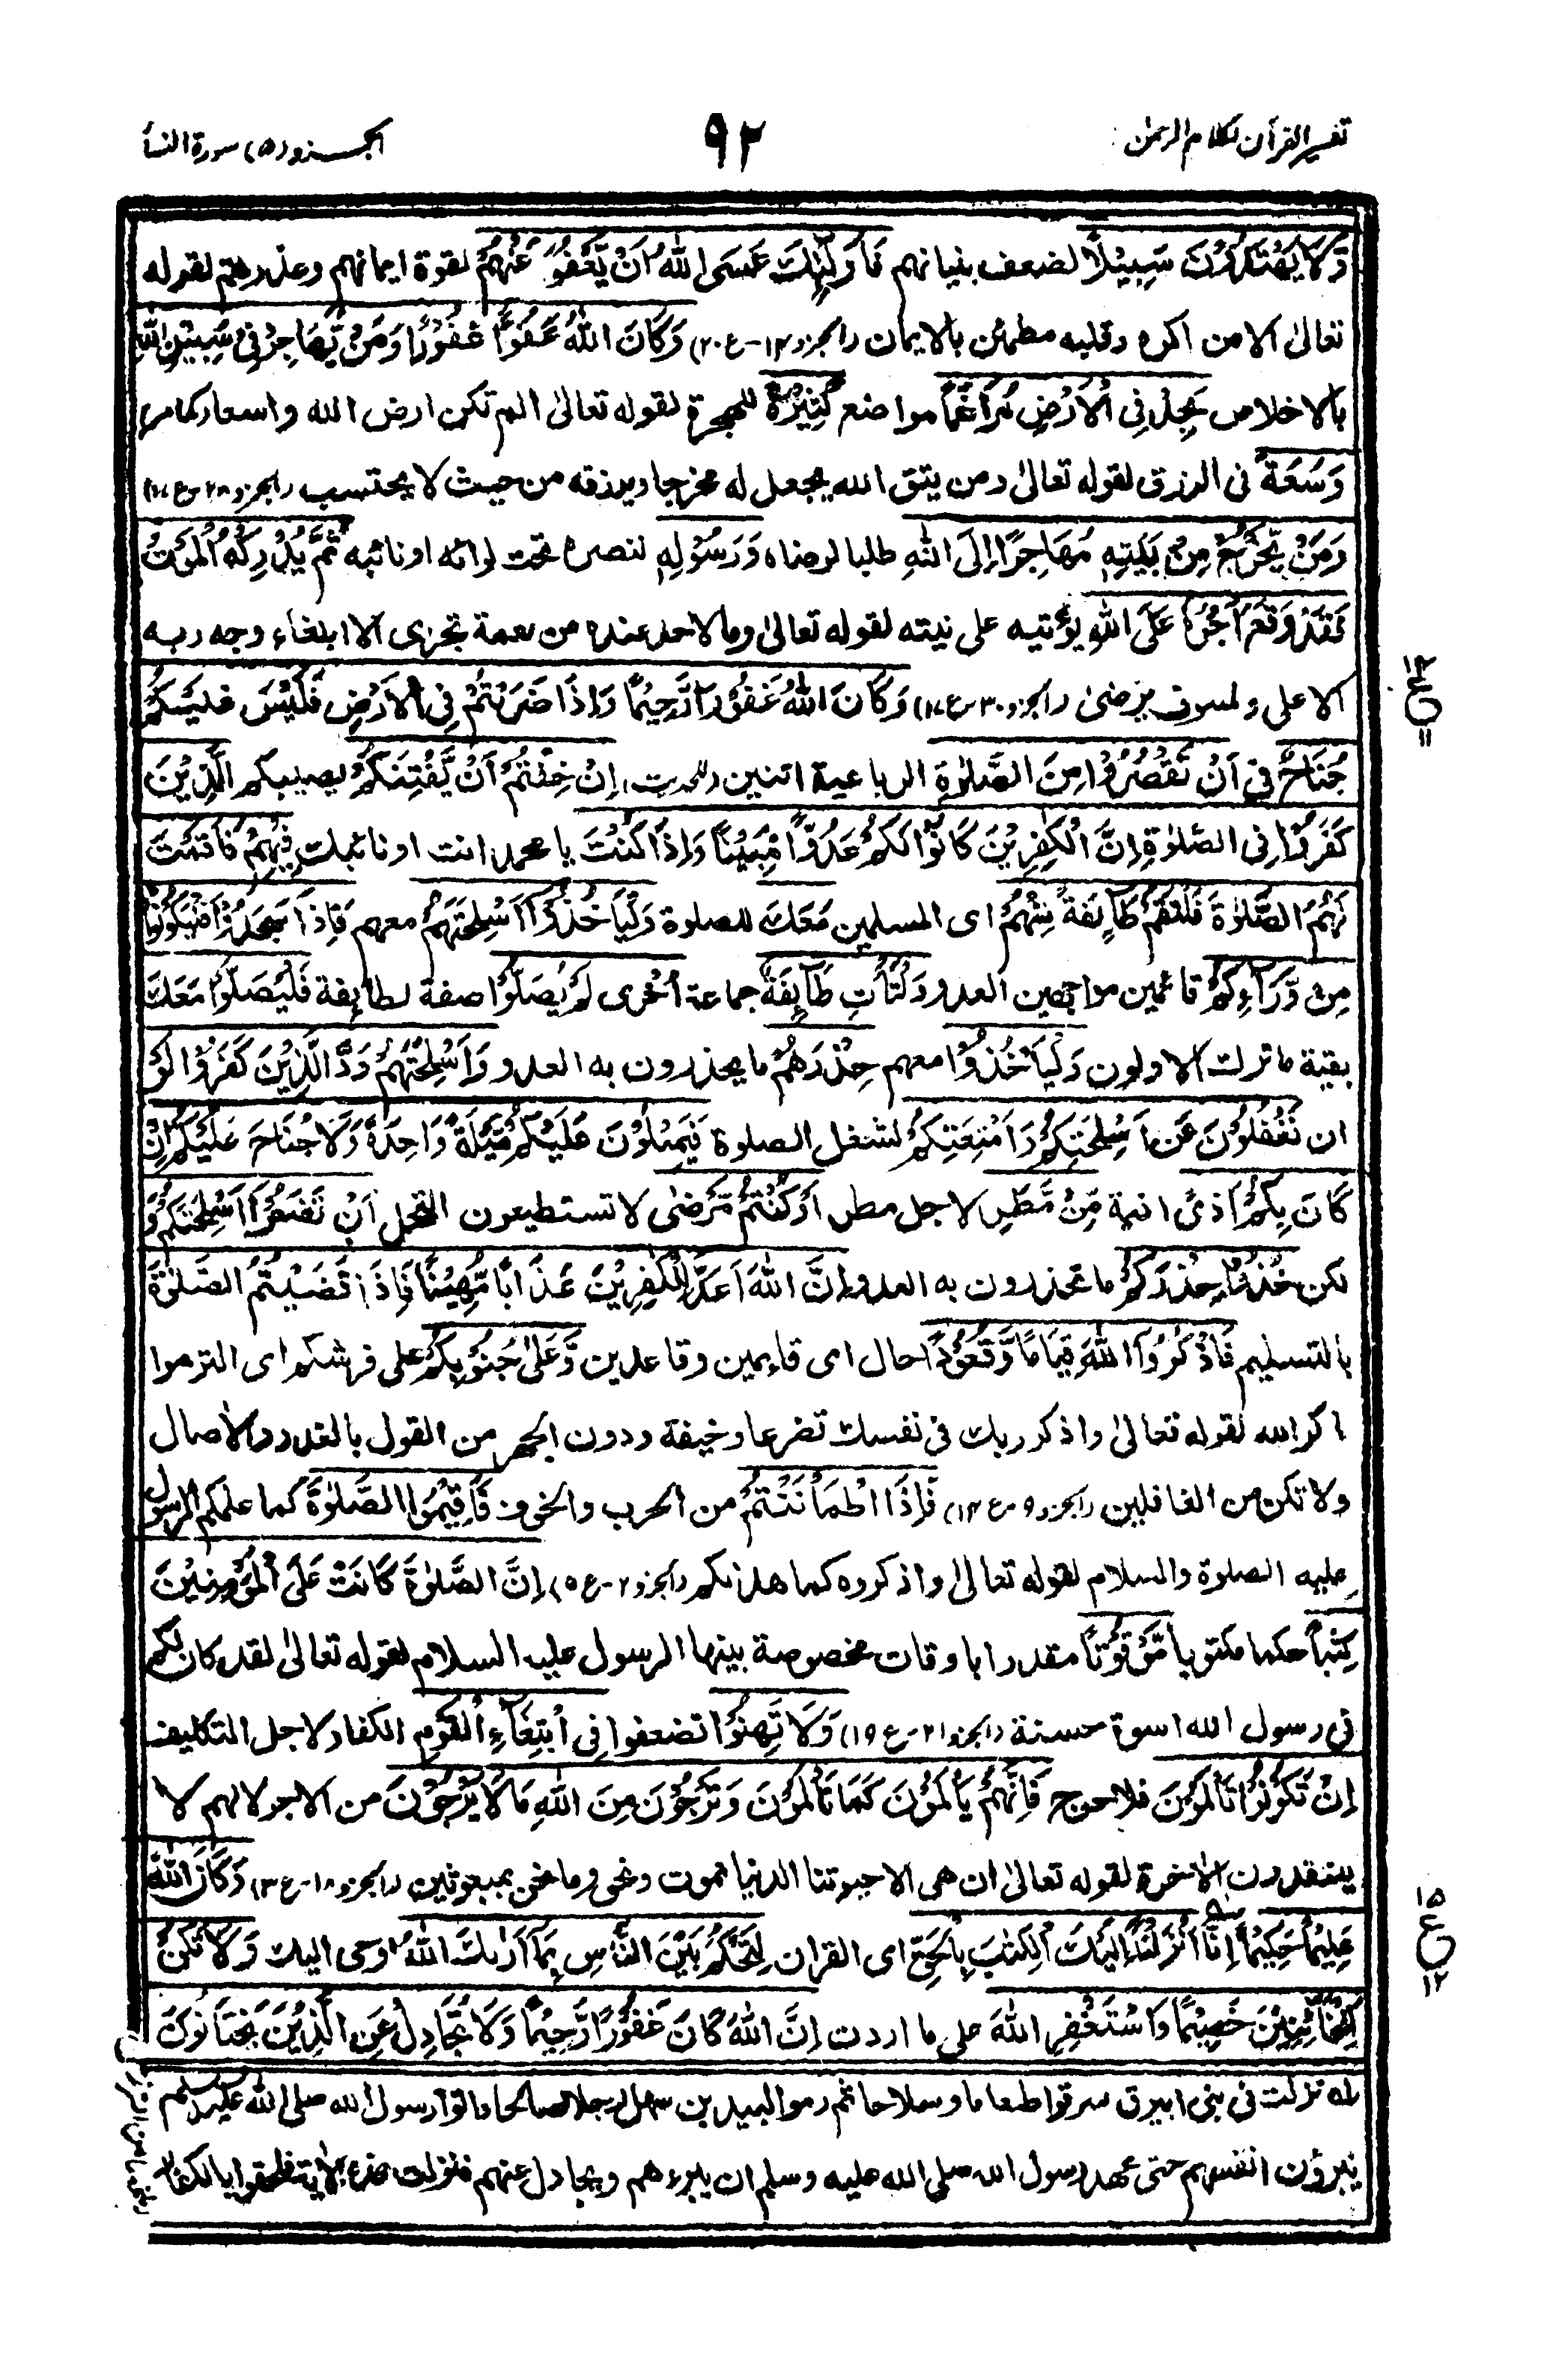 تفسير القرآن بكلام الرحمٰن
٩٢
الجــزو (٥) سورة النسآ
وَّلَا يَهْتَدُوْنَ سَبِيْلًا لضعف بنيانهم فَاُولٰٓئِكَ عَسَى اللّٰهُ اَنْ يَّعْفُوَ عَنْهُمْ لقوة ايمانهم وعذرهم لقوله
تعالىٰ الا من اكره وقلبه مطمئن بالايمان (الجزو ١٤-ع ٢٠) وَكَانَ اللّٰهُ عَفُوًّا غَفُوْرًا وَمَنْ يُّهَاجِرْ فِيْ سَبِيْلِ اللّٰهِ
بالاخلاص يَجِدْ فِى الْاَرْضِ مُرَاغَمًا مواضع كَثِيْرَةً للهجرة لقوله تعالىٰ الم تكن ارض الله واسعة كما مر
وَسَعَةً فى الرزق لقوله تعالىٰ ومن يتق الله يجعل له مخرجا ويرزقه من حيث لا يحتسب (الجزو ٢٨-ع ١٧)
وَمَنْ يَّخْرُجْ مِنْ بَيْتِهٖ مُهَاجِرًا اِلَى اللّٰهِ طلبا لرضاه وَرَسُوْلِهٖ لنصره تحت لوائه او نائبه ثُمَّ يُدْرِكْهُ الْمَوْتُ
فَقَدْ وَقَعَ اَجْرُهٗ عَلَى اللّٰهِ يؤتيه على نيته لقوله تعالىٰ وما لاحد عنده من نعمة تجزى الا ابتغاء وجه ربه
الاعلى ولسوف يرضىٰ (الجزو ٣٠-ع ١٧) وَكَانَ اللّٰهُ غَفُوْرًا رَّحِيْمًا وَاِذَا ضَرَبْتُمْ فِى الْاَرْضِ فَلَيْسَ عَلَيْكُمْ
جُنَاحٌ فى اَنْ تَقْصُرُوْا مِنَ الصَّلٰوةِ الرباعية اثنين (للحديث) اِنْ خِفْتُمْ اَنْ يَّفْتِنَكُمْ يصيبكم الَّذِيْنَ
كَفَرُوْا فى الصلٰوة اِنَّ الْكٰفِرِيْنَ كَانُوْا لَكُمْ عَدُوًّا مُّبِيْنًا وَاِذَا كُنْتَ يا محمد انت او نائبك فِيْهِمْ فَاَقَمْتَ
لَهُمُ الصَّلٰوةَ فَلْتَقُمْ طَآئِفَةٌ مِّنْهُمْ اى المسلمين مَعَكَ للصلوة وَلْيَاْخُذُوْٓا اَسْلِحَتَهُمْ معهم فَاِذَا سَجَدُوْا فَلْيَكُوْنُوْا
مِنْ وَّرَآئِكُمْ قائمين مواجهين العدو وَلْتَاْتِ طَآئِفَةٌ جماعة اُخْرٰى لَمْ يُصَلُّوْا صفة لطائفة فَلْيُصَلُّوْا مَعَكَ
بقية ما ترك الاولون وَلْيَاْخُذُوْا معهم حِذْرَهُمْ ما يحذرون به العدو وَاَسْلِحَتَهُمْ وَدَّ الَّذِيْنَ كَفَرُوْا لَوْ
ان تَغْفُلُوْنَ عَنْ اَسْلِحَتِكُمْ وَاَمْتِعَتِكُمْ لشغل الصلوة فَيَمِيْلُوْنَ عَلَيْكُمْ مَّيْلَةً وَّاحِدَةً وَلَا جُنَاحَ عَلَيْكُمْ اِنْ
كَانَ بِكُمْ اَذًى اذية مِّنْ مَّطَرٍ لاجل مطر اَوْ كُنْتُمْ مَّرْضٰٓى لا تستطيعون التحمل اَنْ تَضَعُوْٓا اَسْلِحَتَكُمْ وَ
لكن خُذُوْا حِذْرَكُمْ ما تحذرون به العدو اِنَّ اللّٰهَ اَعَدَّ لِلْكٰفِرِيْنَ عَذَابًا مُّهِيْنًا فَاِذَا قَضَيْتُمُ الصَّلٰوةَ
بالتسليم فَاذْكُرُوا اللّٰهَ قِيَامًا وَّقُعُوْدًا حال اى قائمين وقاعدين وَّعَلٰى جُنُوْبِكُمْ على فرشكم اى التزموا
ذكر الله لقوله تعالىٰ واذكر ربك فى نفسك تضرعا وخيفة ودون الجهر من القول بالغدو والاٰصال
ولا تكن من الغافلين (الجزو ٩-ع ١٤) فَاِذَا اطْمَاْنَنْتُمْ من الحرب والخوف فَاَقِيْمُوا الصَّلٰوةَ كما علمكم الرسول
عليه الصلوة والسلام لقوله تعالىٰ واذكروه كما هداكم (الجزو ٢-ع ٥) اِنَّ الصَّلٰوةَ كَانَتْ عَلَى الْمُؤْمِنِيْنَ
كِتٰبًا حكما مكتوبا مَّوْقُوْتًا مقدرا باوقات مخصوصة بينها الرسول عليه السلام لقوله تعالىٰ لقد كان لكم
فى رسول الله اسوة حسنة (الجزو ٢١-ع ١٩) وَلَا تَهِنُوْا تضعفوا فِى ابْتِغَآءِ الْقَوْمِ الكفار لاجل التكليف
اِنْ تَكُوْنُوْا تَاْلَمُوْنَ فلا حرج فَاِنَّهُمْ يَاْلَمُوْنَ كَمَا تَاْلَمُوْنَ وَتَرْجُوْنَ مِنَ اللّٰهِ مَا لَا يَرْجُوْنَ من الاجر لانهم لا
يعتقدون الاٰخرة لقوله تعالىٰ ان هى الا حيوتنا الدنيا نموت ونحى وما نحن بمبعوثين (الجزو ١٨-ع ٣) وَكَانَ اللّٰهُ
عَلِيْمًا حَكِيْمًا اِنَّآ اَنْزَلْنَآ اِلَيْكَ الْكِتٰبَ بِالْحَقِّ اى القران لِتَحْكُمَ بَيْنَ النَّاسِ بِمَآ اَرٰىكَ اللّٰهُ اوحى اليك وَلَا تَكُنْ
لِّلْخَآئِنِيْنَ خَصِيْمًا وَّاسْتَغْفِرِ اللّٰهَ على ما اردت اِنَّ اللّٰهَ كَانَ غَفُوْرًا رَّحِيْمًا وَلَا تُجَادِلْ عَنِ الَّذِيْنَ يَخْتَانُوْنَ
له نزلت فى بنى ابيرق سرقوا طعاما وسلاحا ثم رموا لبيد بن سهل رجلا صالحا واتوا رسول الله صلى الله عليه وسلم
يبرؤن انفسهم حتى عهد رسول الله صلى الله عليه وسلم ان يبرءهم ويجادل عنهم فنزلت هذه الاية فلحقوا بالكفار
ع
١١
١٥
ع
١٢